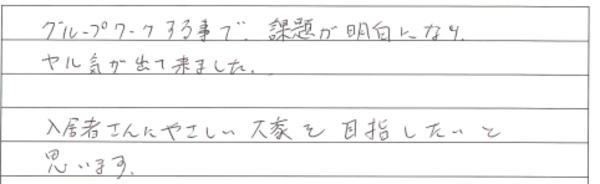 グループワークする事で、課題が明白になり、
ヤル気が出て来ました。
入居者さんにやさしい大家を目指したいと
思います。